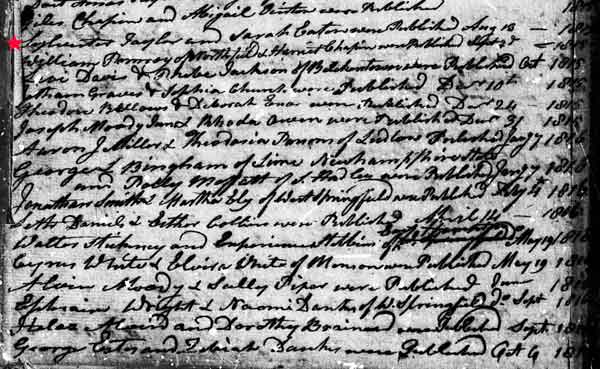 and Abigail were Published
Sylvester Taylor and Sarah Eaton were Published Aug 13 — 1815
William Pomroy of Northfield & Harriet Chapin were Published Sept 3d — 1815
Levi Davis & Phebe Jackson of Belchertown were Published Oct 1815
Graves & Sophia Church were Published Decr 10th — 1815
Theodore Bellows & Deborah were Published Decr 24 1815
Joseph Moody Junr & Rhoda were Published Decr 31 1815
Aaron J Miller & Theodosia Parsons of Ludlow Published Jany 7 1816
George Bingham of Lime Newhampshire
and Polly Moffett of S. Hadley were Published Jany 7 1816
Jonathan Smith 2 & Martha Ely of West Springfield were Published 4 1816
Seth Daniels & Esther Collins were Published April 14 — 1816
Walter and Experience Stebbins of May 19 1816
Cyrus White & Elvira White of Monson were Published May 19 1816
Alvin Moody & Sally Piper were Published June 1816
Ephraim Wright & Naomi Danks of W. Springfield Do Sept 1816
and Dorothy Brainerd were Published Sept 1816
George and Danks were Published Oct 1816